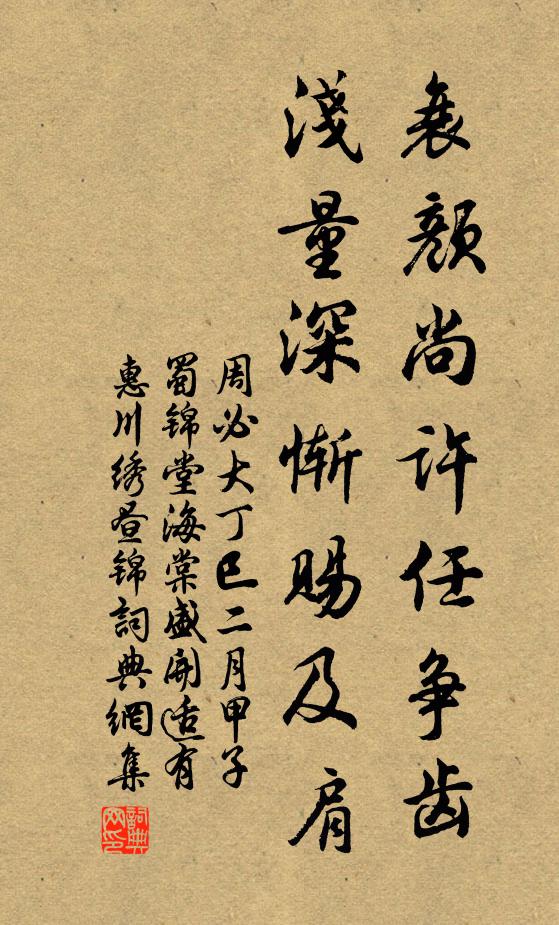 衰颜尚许任争齿
浅量深惭赐及肩
周必大丁巳二月甲子
蜀锦堂海棠盛开适有
惠川绣昼锦詞典網集
詞典網印